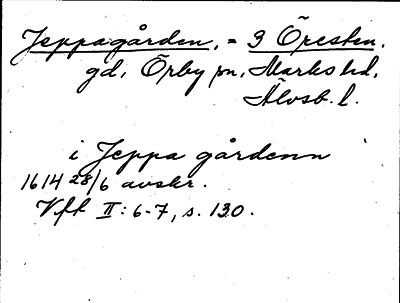 Jeppagården, = 9 Öresten.
gd, Örby sn, Marks hd,
Älvsb. l.
i Jeppa gårdenn
1614 28/6 avskr.
Vft II: 6-7, s. 130.